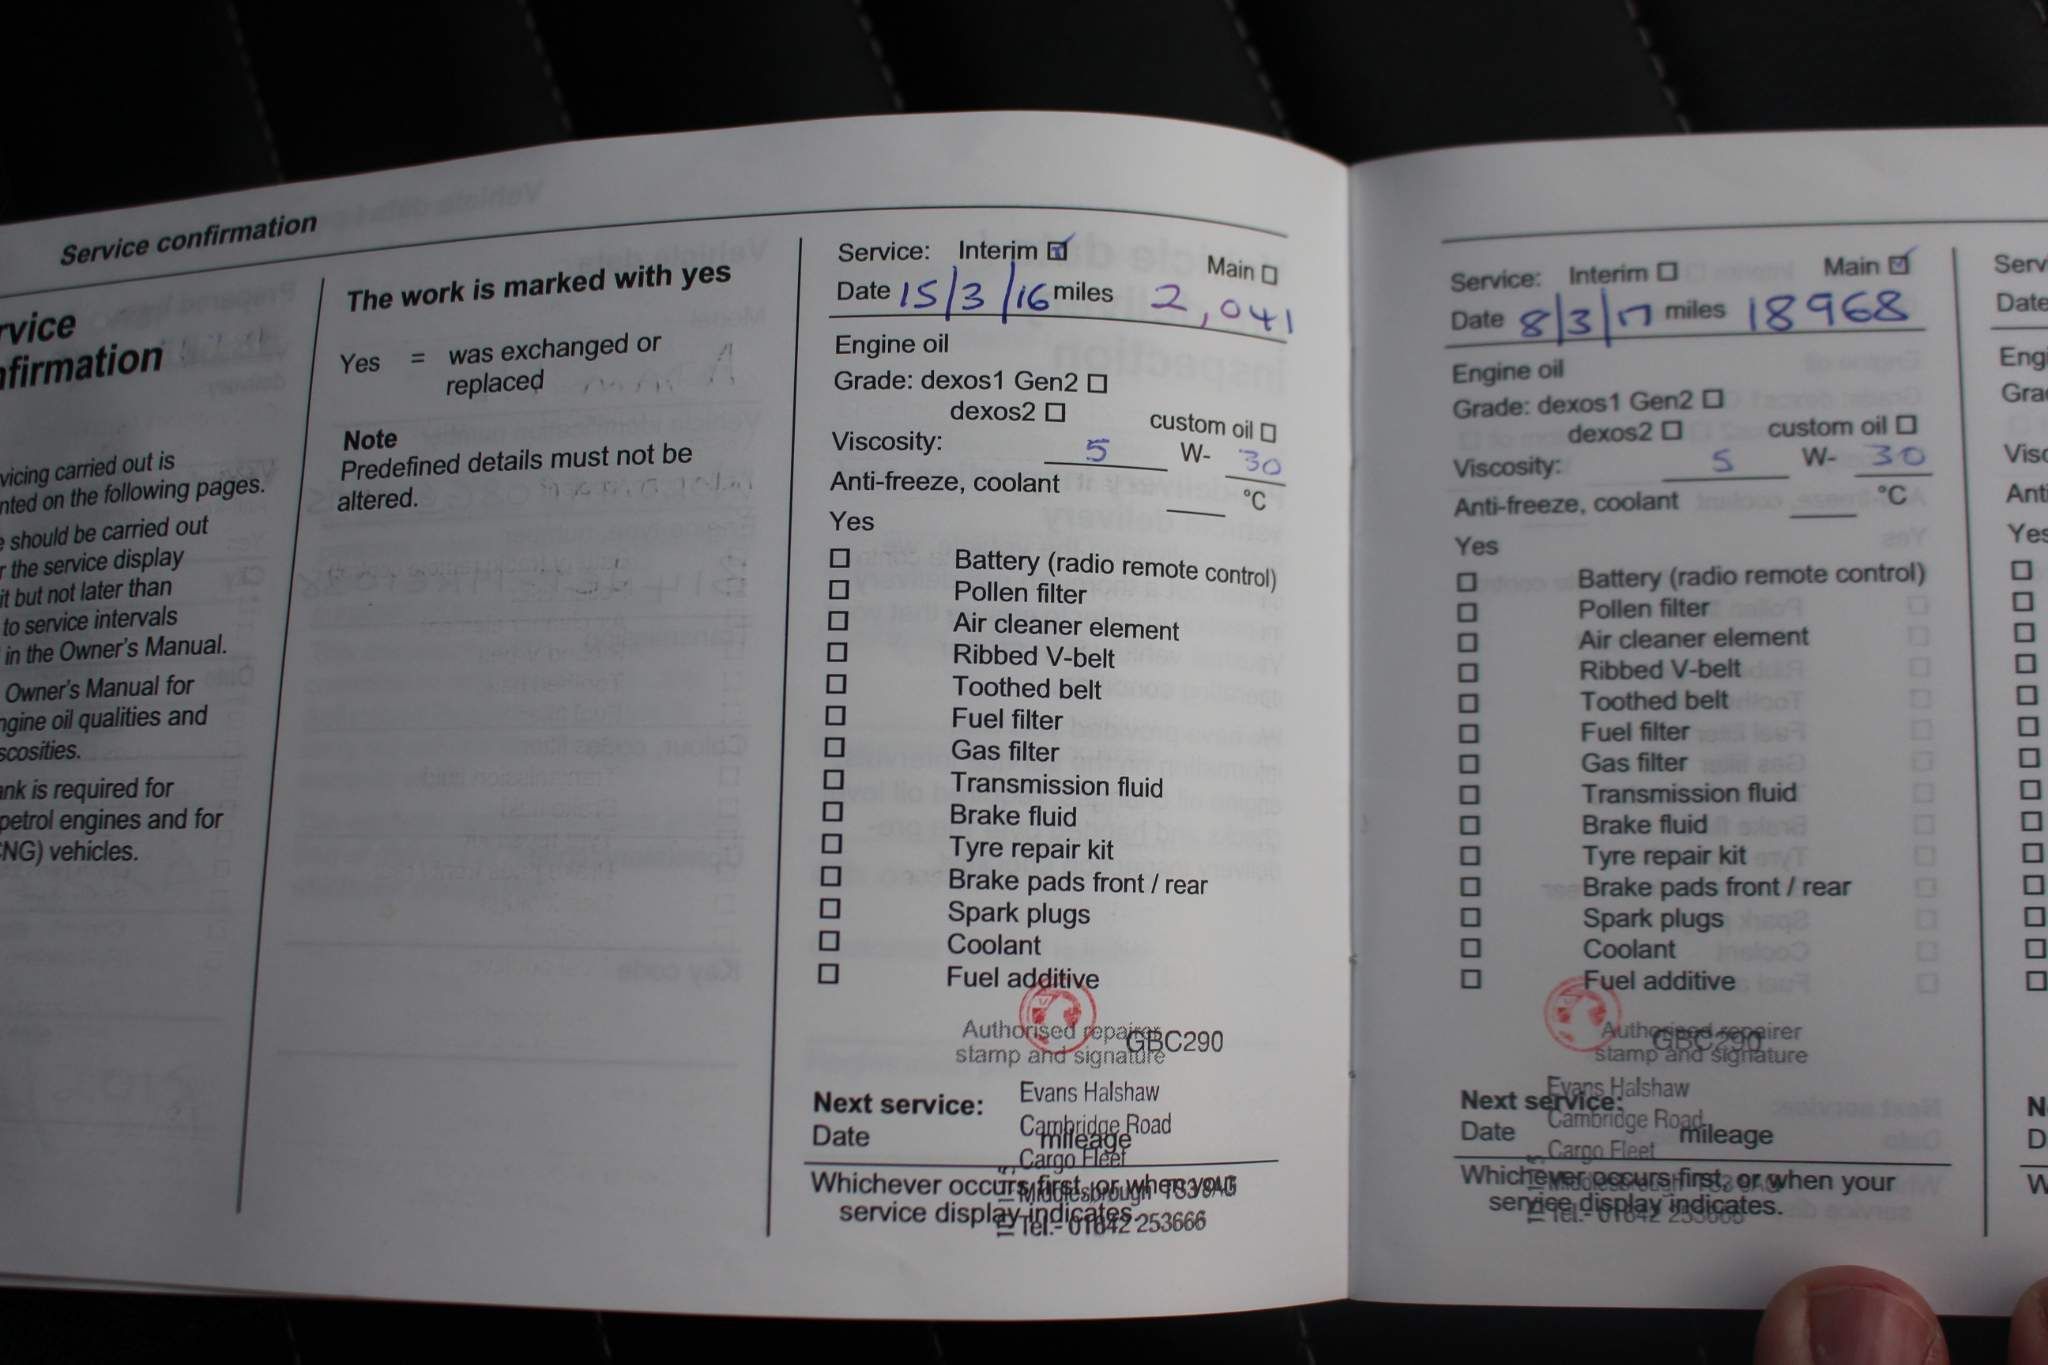 Service confirmation
rvice
nfirmation
vicing carried out is
nted on the following pages.
e should be carried out
r the service display
it but not later than
to service intervals
in the Owner's Manual.
Owner's Manual for
ngine oil qualities and
scosities.
ank is required for
petrol engines and for
CNG) vehicles.
The work is marked with yes
Yes = was exchanged or
replaced
Note
Predefined details must not be
altered.
Service: Interim Main
Date 15/3/16 miles 2,041
Engine oil
Grade: dexos1 Gen2
dexos2 custom oil
Viscosity: 5 W- 30
Anti-freeze, coolant °C
Yes
Battery (radio remote control)
Pollen filter
Air cleaner element
Ribbed V-belt
Toothed belt
Fuel filter
Gas filter
Transmission fluid
Brake fluid
Tyre repair kit
Brake pads front / rear
Spark plugs
Coolant
Fuel additive
Authorised repairer
stamp and signature
GBC290
Evans Halshaw
Cambridge Road
Cargo Fleet
Middlesbrough TS3 8AG
Tel.- 01642 253666
Next service:
Date mileage
Whichever occurs first, or when your
service display indicates.
Service: Interim Main
Date 8/3/17 miles 18968
Engine oil
Grade: dexos1 Gen2
dexos2 custom oil
Viscosity: 5 W- 30
Anti-freeze, coolant °C
Yes
Battery (radio remote control)
Pollen filter
Air cleaner element
Ribbed V-belt
Toothed belt
Fuel filter
Gas filter
Transmission fluid
Brake fluid
Tyre repair kit
Brake pads front / rear
Spark plugs
Coolant
Fuel additive
Authorised repairer
stamp and signature
GBC290
Evans Halshaw
Cambridge Road
Cargo Fleet
Tel.- 01642 253666
Next service:
Date mileage
Whichever occurs first, or when your
service display indicates.
Serv
Date
Engi
Gra
Visc
Anti
Yes
N
D
W